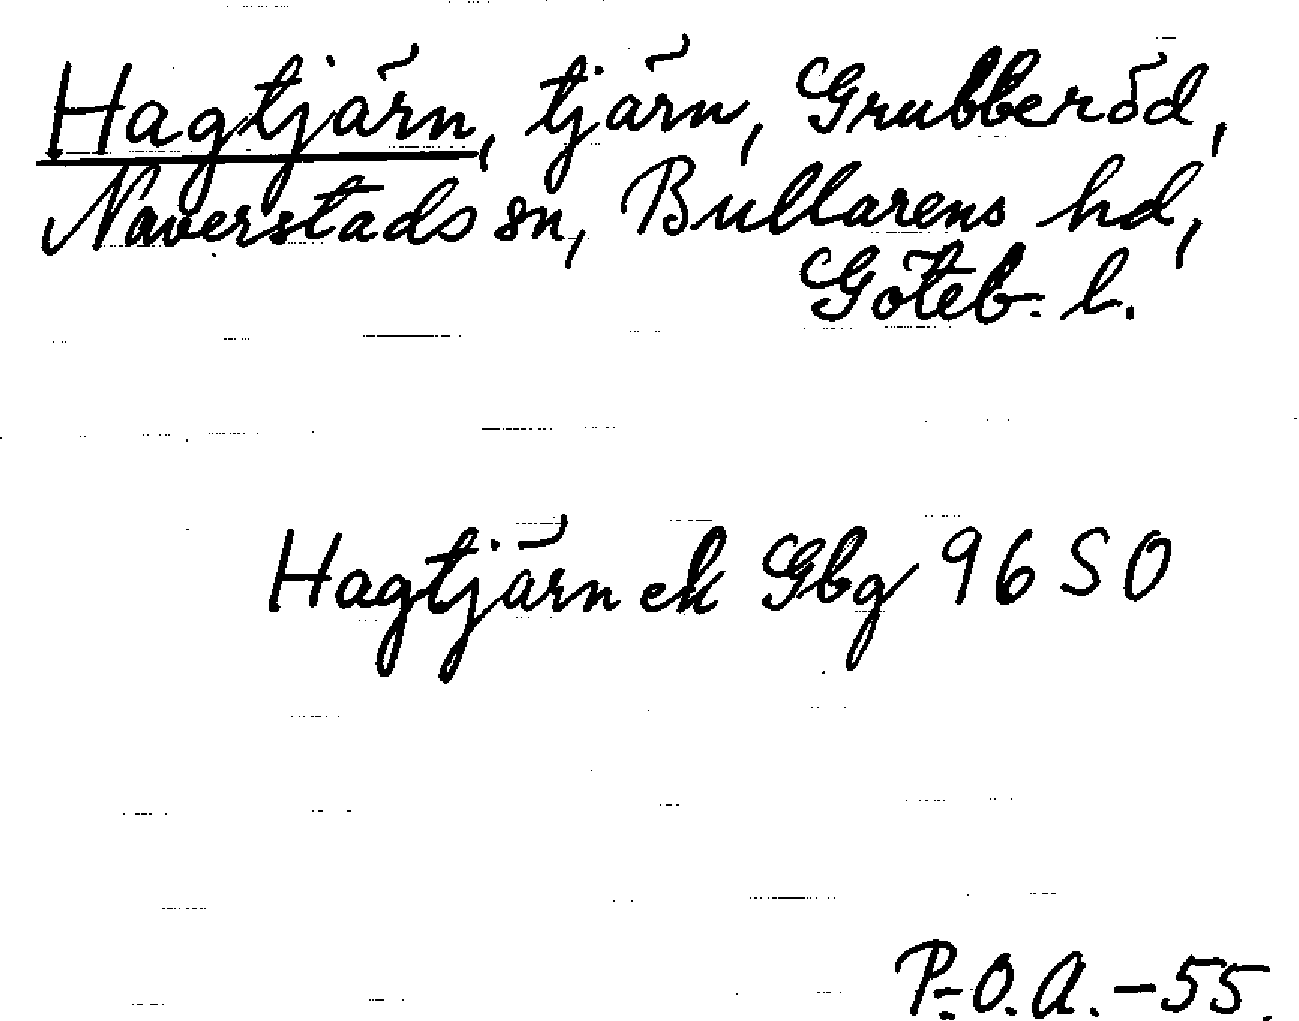 Hagtjärn, tjärn, Grubberöd,
Naverstads sn, Bullarens hd,
Göteb. l.
Hagtjärn ek Gbg 96 SO
P.-O.A. -55.